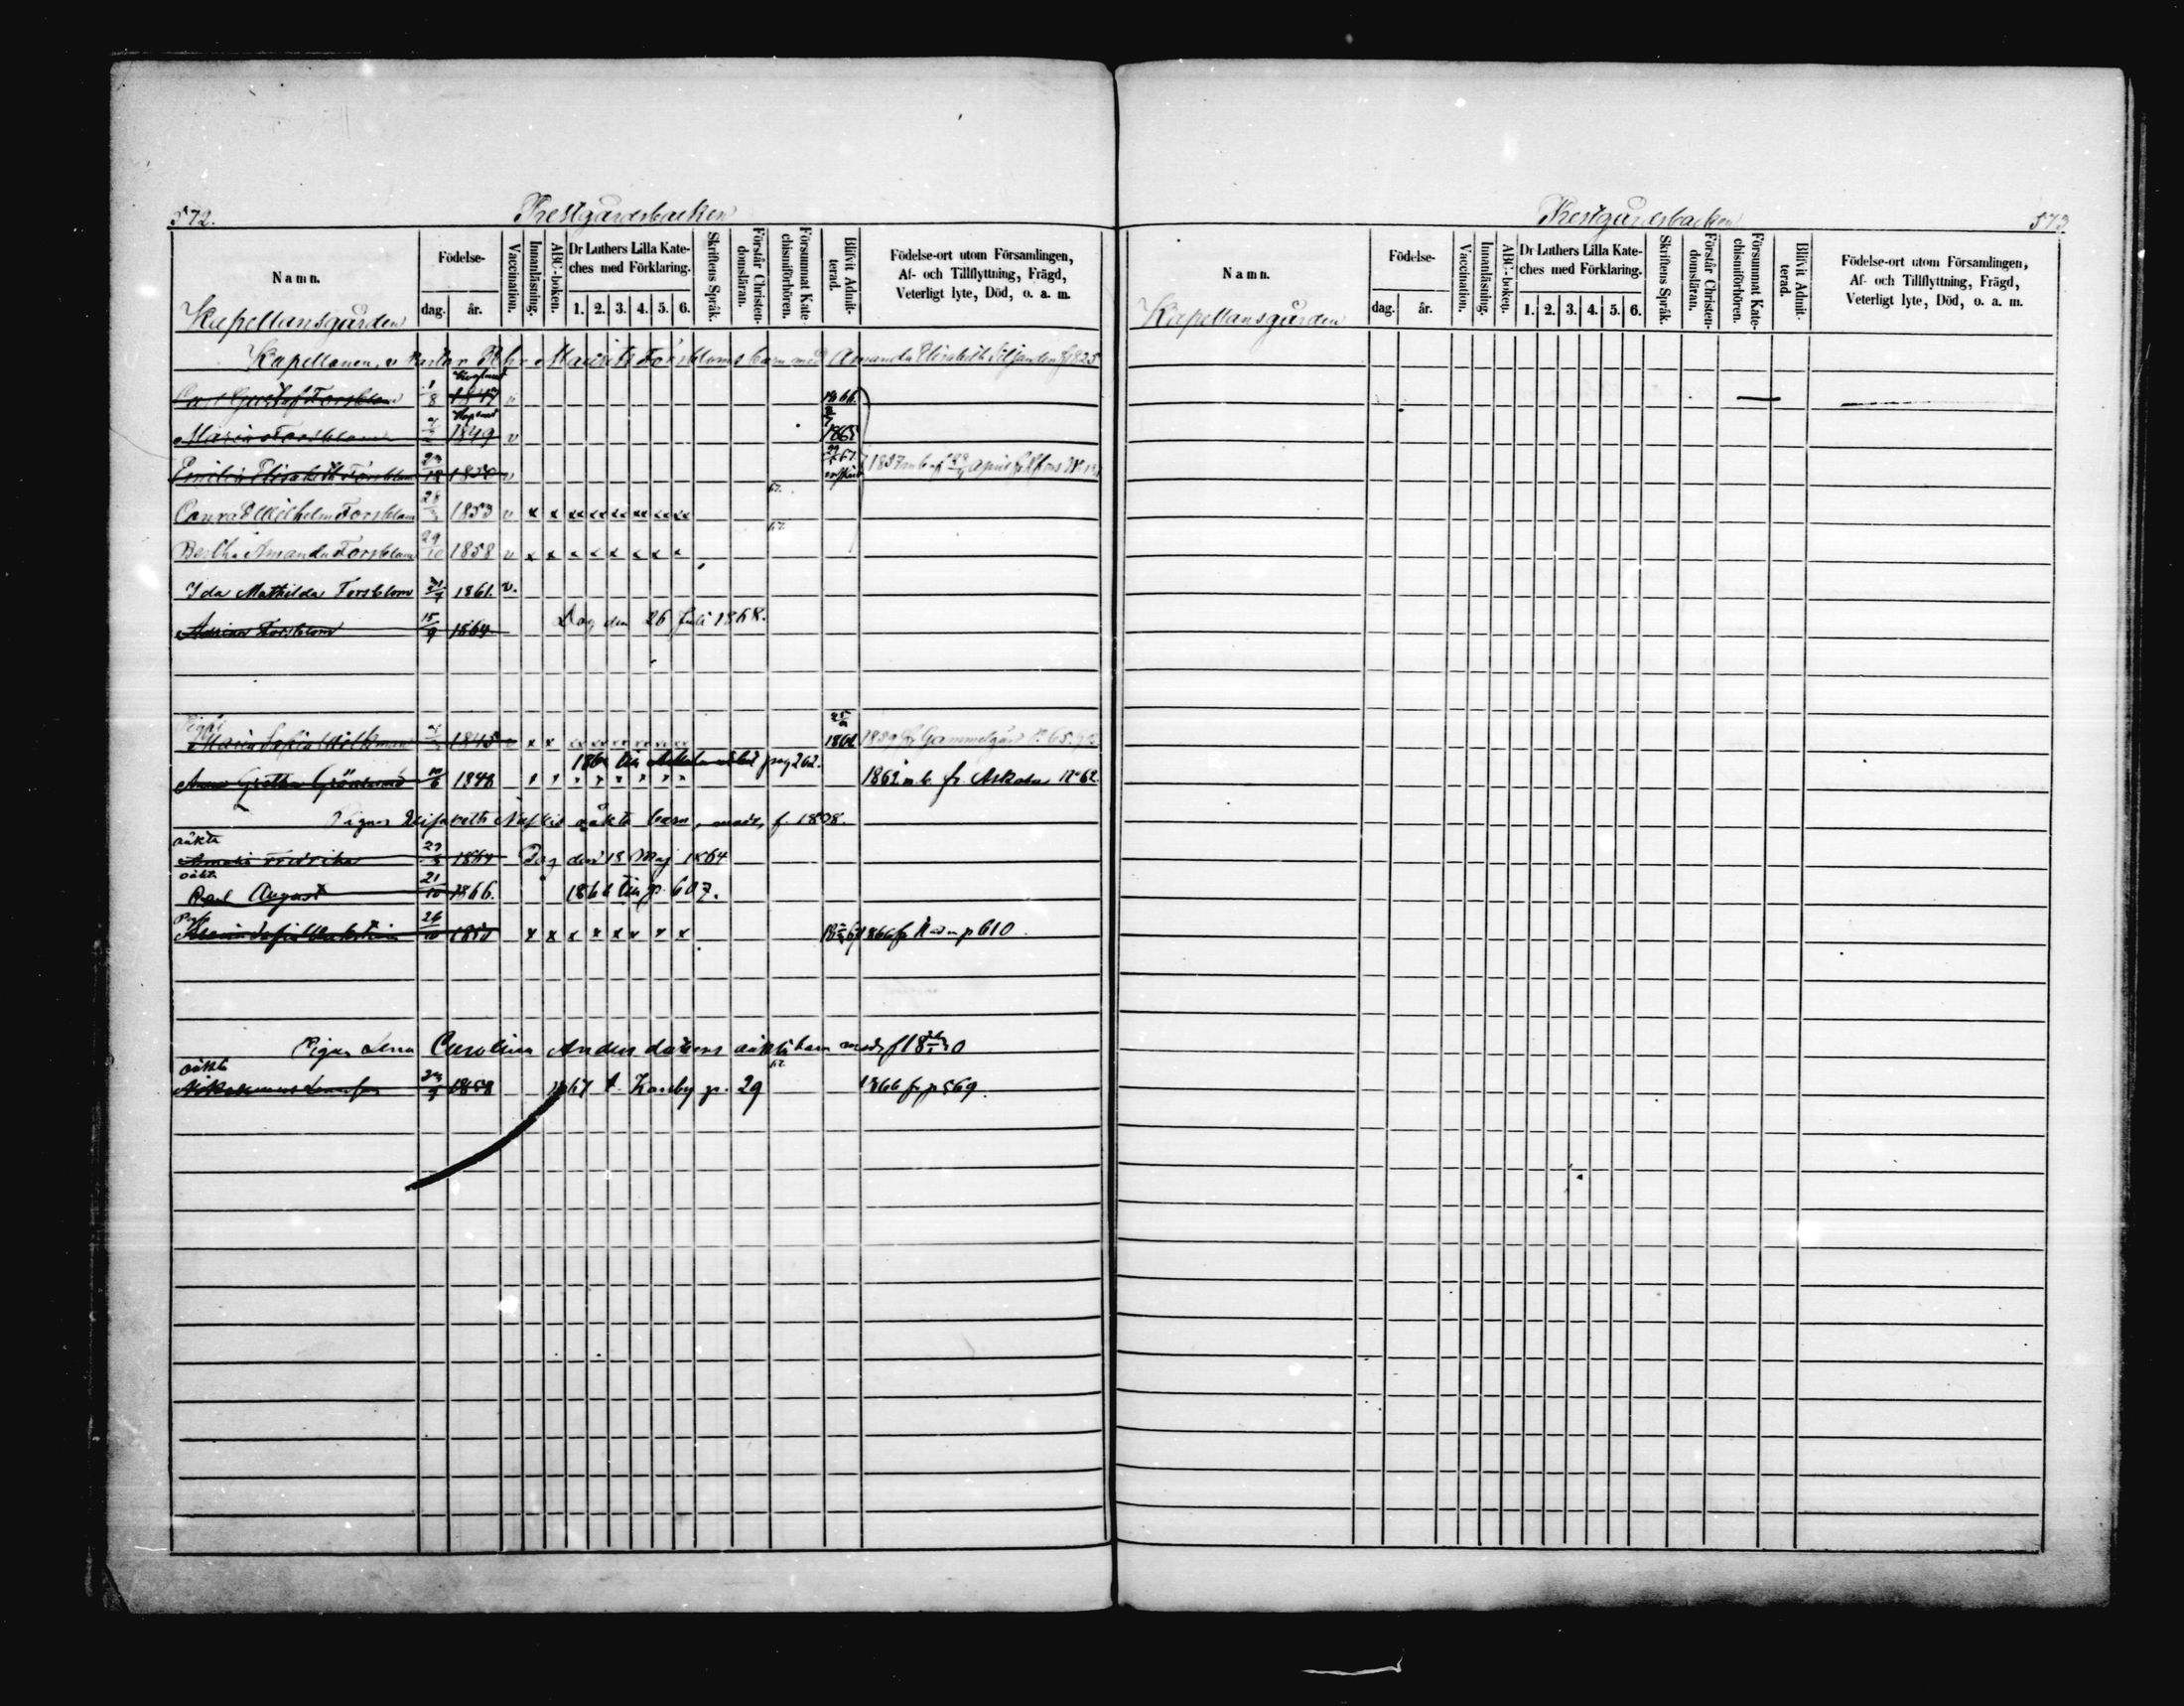 572.
Prestgårdsbacken
Namn.
Födelse-
dag. år.
Vaccination.
Innanläsning.
ABC-boken.
Dr Luthers Lilla Kate-
ches med Förklaring.
1. 2. 3. 4. 5. 6.
Skriftens Språk.
Förstår Christen-
domsläran.
Försummat Kate-
chismiförhören.
Blifvit Admit-
terad.
Födelse-ort utom Församlingen,
Af- och Tillflyttning, Frägd,
Veterligt lyte, Död, o. a. m.
Kapellansgården
Kapellanen, v Pastor Mauritz Forsbloms barn med Amanda Elisabeth 1825
Carl Gustaf Forsblom 1/8 1847 v 1866.
Maria Forsblom 1849 v 1865
Emilia Elisabeth Forsblom 1850 v 1857 m b af April fr
Conrad Wilhelm Forsblom 28 1853 v x x xx xx xx xx xx xx 67.
Bertha Amanda Forsblom 29/10 1858 v x x x x x x x x 67.
Ida Mathilda Forsblom 1861. v.
Adrian Forsblom 15/9 1864 Dog den 26 Juli 1868.
Piga
Maria Sofia 1845 x x xx xx xx xx xx xx 1862 1859 fr Gammelgård
1864 till pag 262.
Anna Gretha 10/6 1848 x x x x x x x x 1862 m b. fr. Askola No 62.
Pigan Elisabeths oäkta barn, modr, f. 1838.
oäkta
Amalia Fredrika 1864 Dog den 18 Maj 1864
oäkt.
Carl August 21/10 1866. till p. 607.
Pig.
Sofia 26/10 1850 x x x x x x x x 1866 fr p 610
Pigan Lena Carolina Anders dotters oäkta barn modr f
oäkta 67.
1858 1867 t. p. 29 1866 fr p 569.
Prestgårdsbacken
573
Namn.
Födelse-
dag. år.
Vaccination.
Innanläsning.
ABC-boken.
Dr Luthers Lilla Kate-
ches med Förklaring.
1. 2. 3. 4. 5. 6.
Skriftens Språk.
Förstår Christen-
domsläran.
Försummat Kate-
chismiförhören.
Blifvit Admit-
terad.
Födelse-ort utom Församlingen,
Af- och Tillflyttning, Frägd,
Veterligt lyte, Död, o. a. m.
Kapellansgården